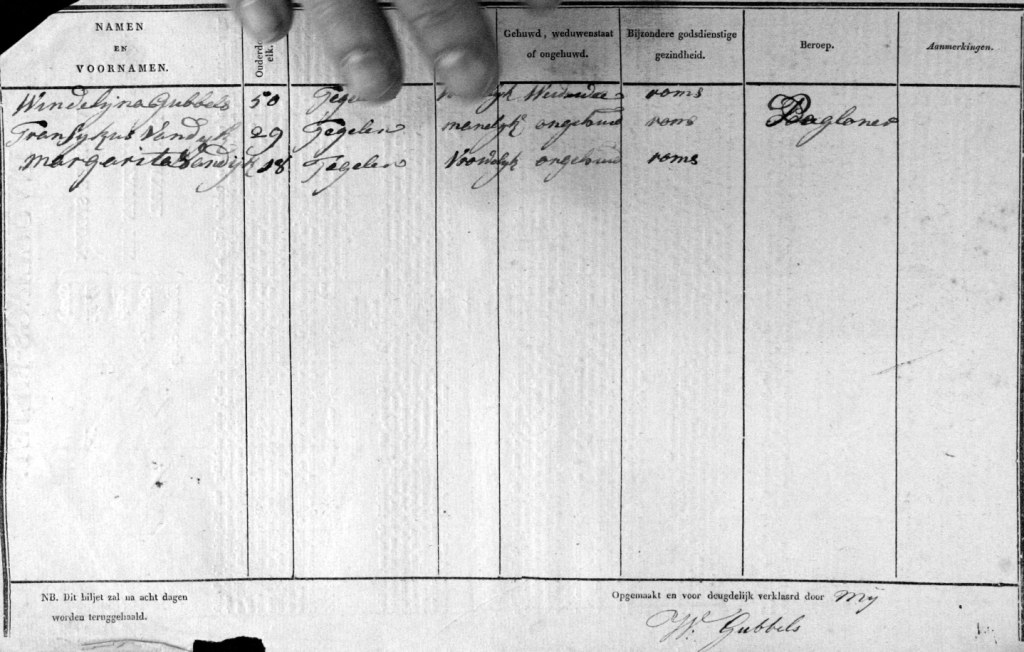 NAMEN
EN
VOORNAMEN.
Ouderd
elk.
Gehuwd, weduwenstaat
of ongehuwd.
Bijzondere godsdienstige
gezindheid.
Beroep.
Aanmerkingen.
Windelijna Gubbels 50 roms
Fransijkus Vandijk 29 Tegelen manelijk ongehuud roms Dagloner
Margarita Vandijk 18 Tegelen Vroowelijk ongehuud roms
NB. Dit biljet zal na acht dagen
worden teruggehaald.
Opgemaakt en voor deugdelijk verklaard door Mij
W. Gubbels